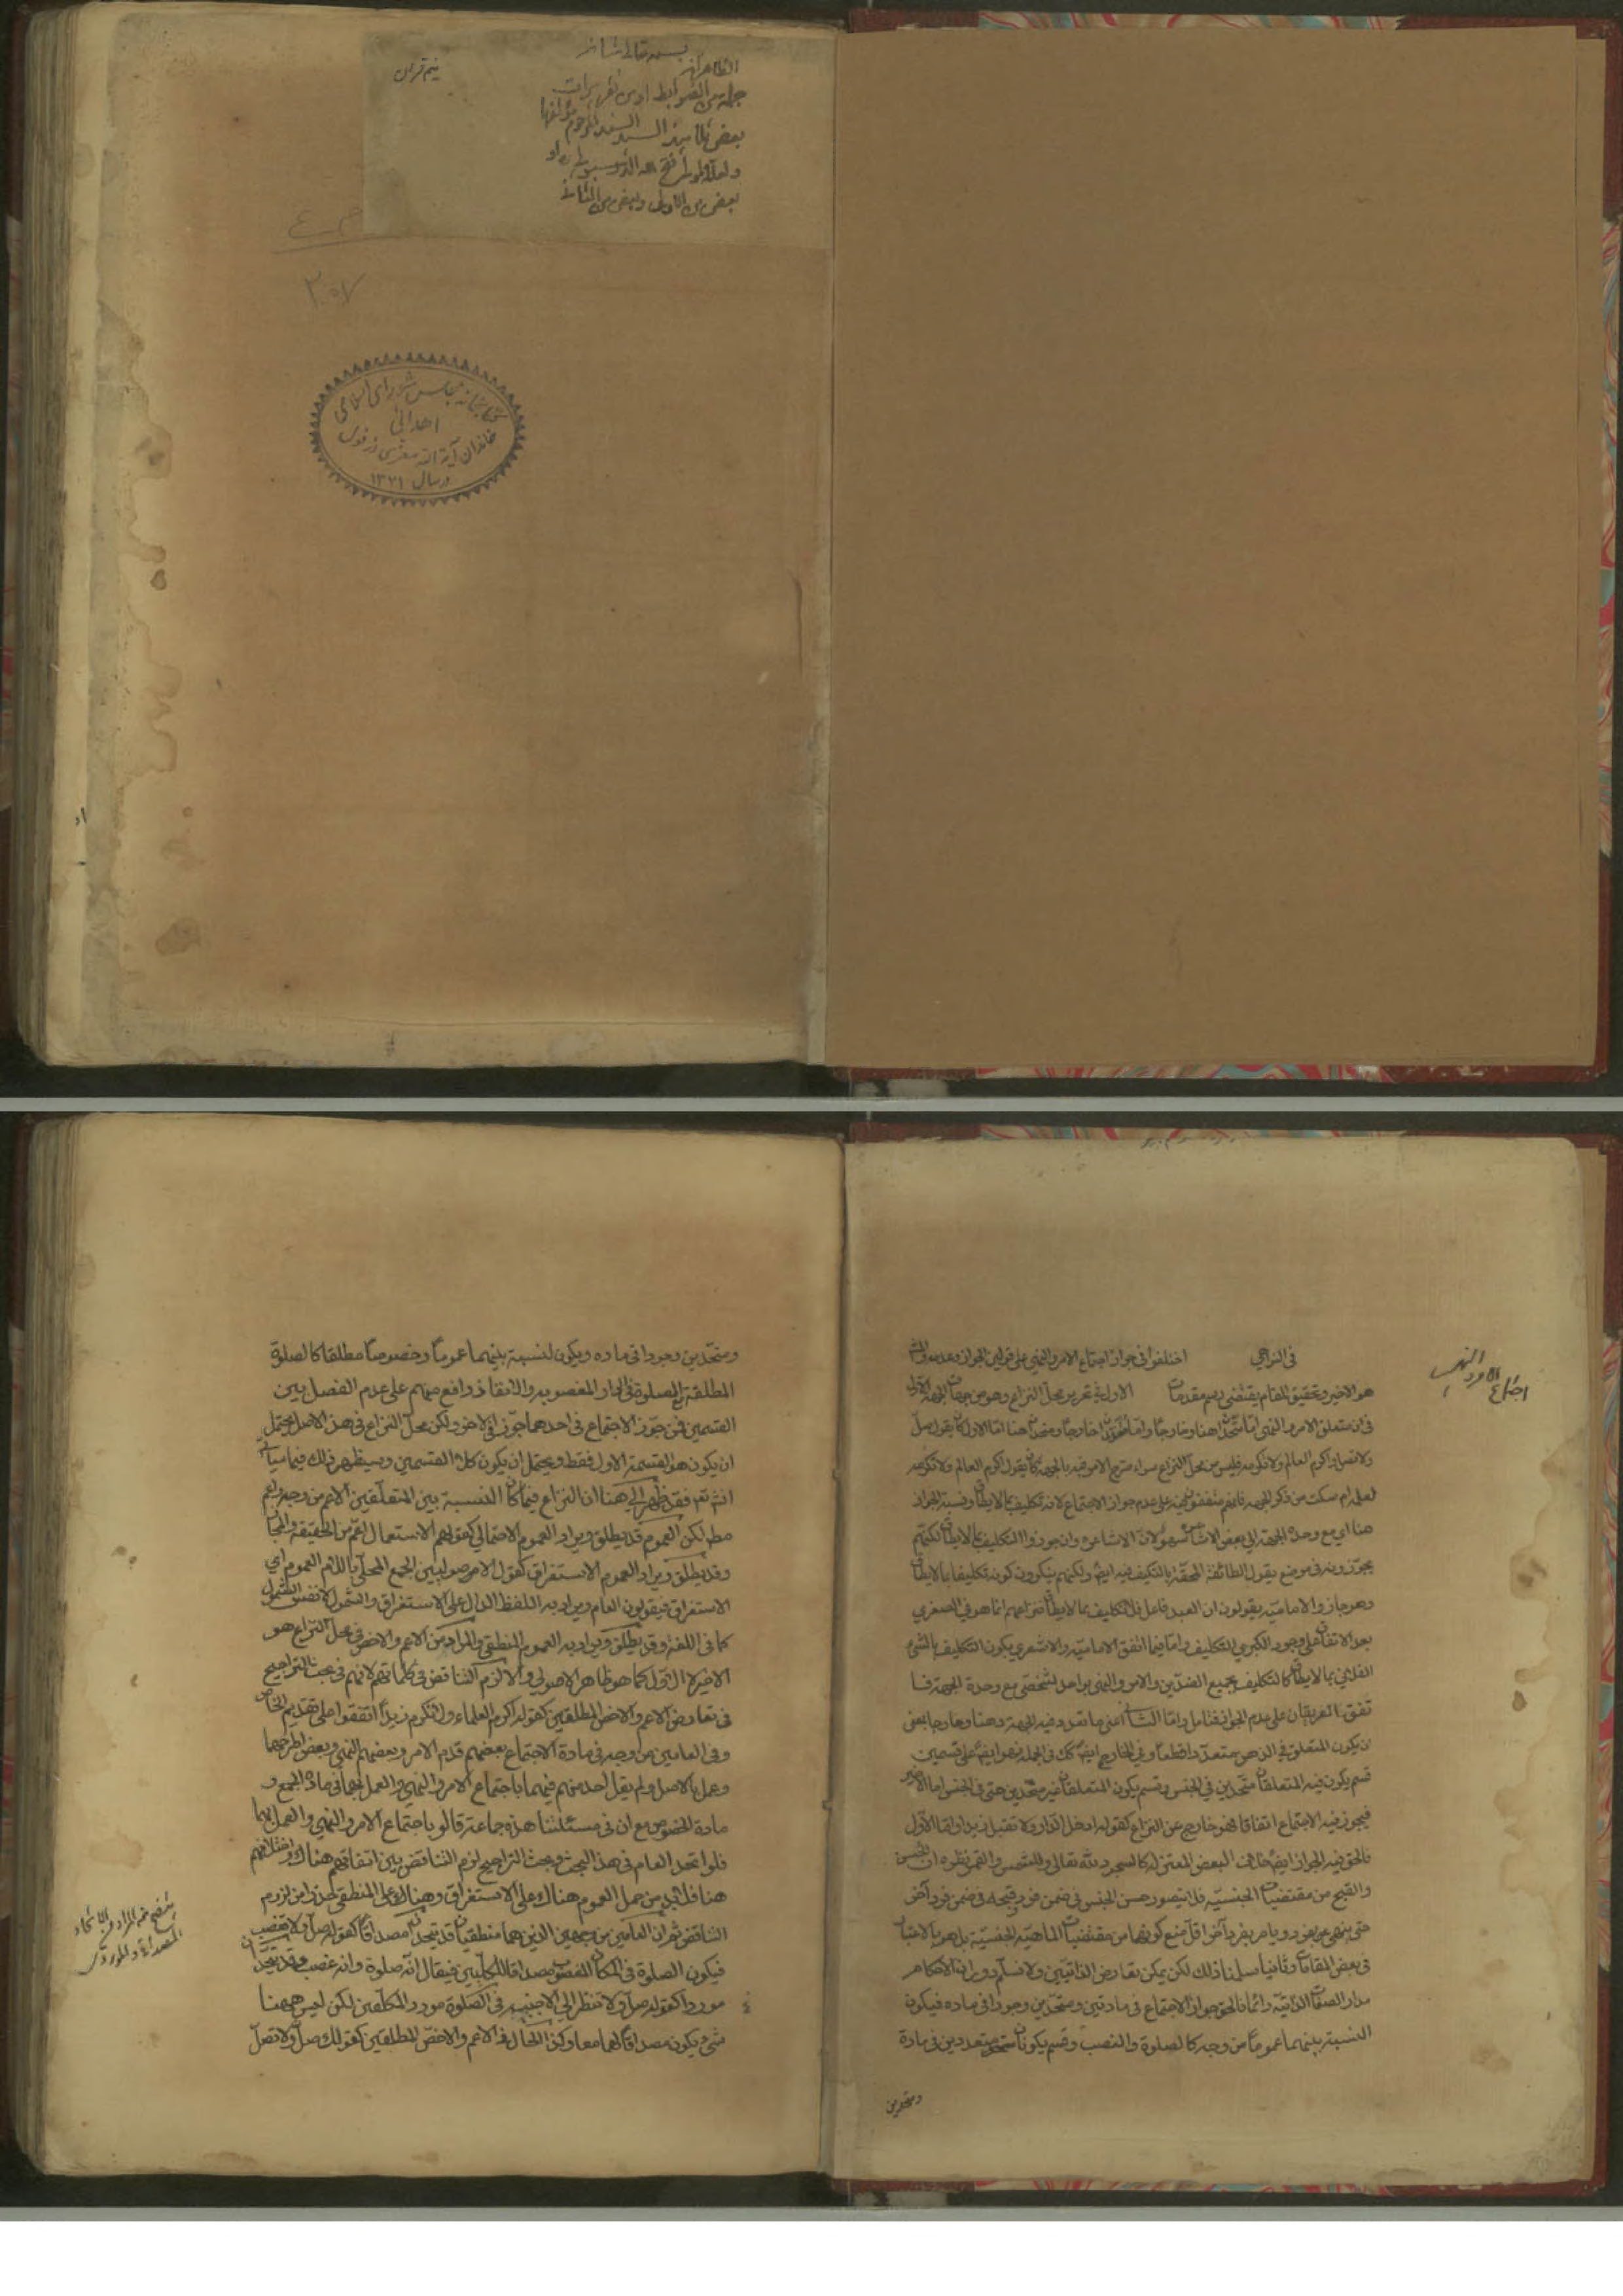 بسمه تعالی شانه
الظاهر انه
جملة من الضوابط او من تقریرات
بعض تلامیذ السید المرحوم مؤلفها
بعض من الاولی وبعض من الثانی
۳۰۵۷
کتابخانه مجلس شورای اسلامی
اهدائی
خاندان آیة الله معزی دزفولی
در سال ۱۳۷۱
اجتماع الامر والنهی
فی النواهی اختلفوا فی جواز اجتماع الامر والنهی علی قولین الجواز وعدمه والحق
هو الاخیر وتحقیق المقام یقتضی رسم مقدمات الاولی فی تقریر محل النزاع وهو من جهات الجهة الاولی
فی ان متعلق الامر والنهی اما متحدا ذهنا وخارجا واما خارجا ومتحد ذهنا اما الاول کان یقول صل
ولا تصل او اکرم العالم ولا تکرمه فلیس من محل النزاع سواء صرح الامر فیه بالجهة کان یقول اکرم العالم ولا تکرمه
لعلمه ام سکت من ذکر الجهة فانهم متفقون علی عدم جواز الاجتماع لانه تکلیف بما لا یطاق ونسبة الجواز
هنا ای مع وحدة الجهة الی بعض الاشاعرة سهو لان الاشاعرة وان جوزوا التکلیف بما لا یطاق لکنهم
یجوزونه فی موضع یقول الطائفة المحقة بالتکلیف فیه ایضا ولکنهم ینکرون کونه تکلیفا بما لا یطاق
وهو جاز والامامیة یقولون ان العبد فاعل فلا تکلیف بما لا یطاق فنزاعهم انما هو فی الصغری
بعد الاتفاق علی وجود الکبری للتکلیف واما فیما اتفق الامامیة والاشعری بکون التکلیف بالشیء
الفلانی بما لا یطاق کالتکلیف بجمیع الضدین والامر والنهی بواحد شخصی مع وحدة الجهة فــا
تفق الفریقان علی عدم الجواز فتامل واما الثانی اعنی ما تعدد فیه الجهة ذهنا وخارجا بمعنی
ان یکون المتعلق فی الذهن متعددا قطعا وفی الخارج ایضا کک فی الجملة فهو ایضا علی قسمین
قسم یکون فیه المتعلقان متحدین فی الجنس وقسم یکون المتعلقان غیر متحدین حتی فی الجنس اما الاخیر
فیجوز فیه الاجتماع اتفاقا فهو خارج عن النزاع کقوله ادخل الدار ولا تقبل زیدا واما الاول
فالحق فیه الجواز ایضا خلافا لبعض المعتزلة کالسجود لله تعالی وللشمس والقمر نظره ان الحسن
والقبح من مقتضیات الجنسیة فلا یتصور حسن الجنس فی ضمن فرد وقبحه فی ضمن فرد آخر
حتی ینهی عن فرد ویامر بفرد آخر اقل منع کونهما من مقتضیات الماهیة الجنسیة بل هو بالاعتبار
فی بعض المقامات وثانیا سلمنا ذلک لکن یمکن تعارض الذاتیین ولا نسلم دوران الاحکام
مدار الصفات الذاتیة دائما فالحق جواز الاجتماع فی مادتین ومتحدین وجودا فی مادة فیکون
النسبة بینهما عموما من وجه کالصلوة والغصب وقسم یکونان متعددین فی مادة
ومتحدین
ومتحدین وجودا فی مادة ویکون النسبة بینهما عموما وخصوصا مطلقا کالصلوة
المطلقة مع الصلوة فی الدار المغصوبة والاتفاق واقع منهم علی عدم الفصل بین
القسمین فمن جوز الاجتماع فی احدهما جوز فی الاخر ولکن محل النزاع فی هذا الاصل یحتمل
ان یکون هو القسم الاول فقط ویحتمل ان یکون کلا القسمین وسیظهر ذلک فیما سیاتی
انشاء تع فقد ظهر الی هنا ان النزاع فیما کان النسبة بین المتعلقین الاعم من وجه او عم
مط لکن العموم قد یطلق ویراد العموم الاحتمالی کقولهم الاستعمال اعم من الحقیقة والمجاز
وقد یطلق ویراد العموم الاستغراقی کقول الاصولیین الجمع المحلی باللام للعموم ای
الاستغراق فیقولون العام ویراد به اللفظ الدال علی الاستغراق والشمول لا نفس الشمول
کما فی اللغة وقد یطلق ویراد به العموم المنطقی والمراد من الاعم والاخص فی محل النزاع هو
الاخیر لا الاول کما هو ظاهر الاصولی والا لزم التناقض فی کلماتهم لانهم فی بحث التراجیح
فی تعارض الاعم والاخص المطلقین کقوله اکرم العلماء ولا تکرم زیدا اتفقوا علی تقدیم الخاص
وفی العامین من وجه فی مادة الاجتماع بعضهم قدم الامر وبعضهم النهی وبعض اطرحهما
وعمل بالاصل ولم یقل احد منهم فیهما باجتماع الامر والنهی والعمل بهما فی مادة الجمع و
مادة الخصوص مع ان فی مسئلتنا هذه جماعة قالوا باجتماع الامر والنهی والعمل بهما
فلو اتحد العام فی هذا البحث وبحث التراجیح لزم التناقض بین اتفاقهم هناک واختلافهم
هنا فلا بد من حمل العموم هناک علی الاستغراق وهنا علی المنطقی حذرا من لزوم
التناقض ثم ان العامین من وجهین الذین هما منطقیان قد یتحدان مصداقا کقوله صل ولا تغصب
فیکون الصلوة فی المکان المغصوب مصداقا للکلیین فیقال انه صلوة وانه غصب وقد یتحدان
موردا کقوله صل ولا تنظر الی الاجنبیة فی الصلوة مورد المکلفین لکن لیس ههنا
شیء یکون مصداقا لهما معا وکذا الحال فی الاعم والاخص المطلقین کقولک صل ولا تصل